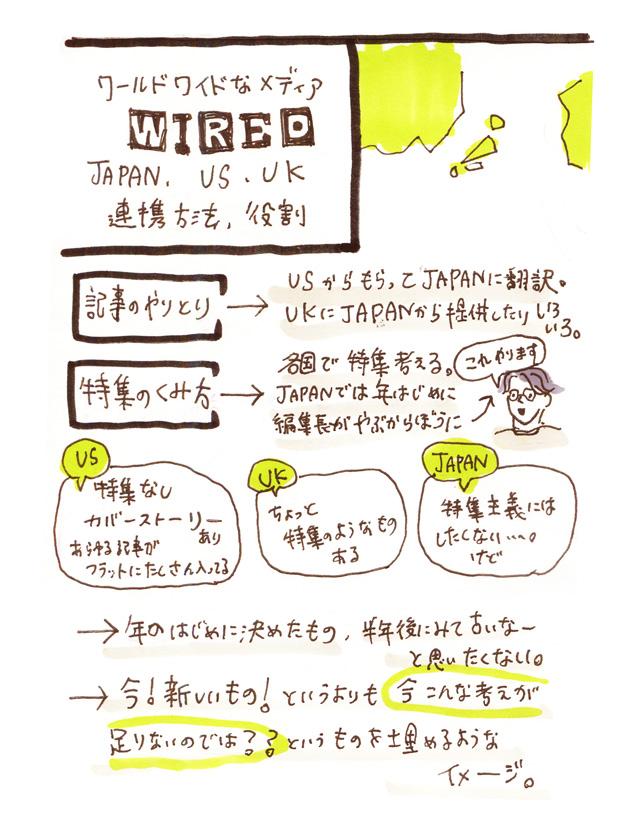 ワールドワイドなメディア
WIRED
JAPAN. US. UK
連携方法、役割
記事のやりとり
→ USからもらってJAPANに翻訳。
UKにJAPANから提供したりいろ
いろ。
特集のくみ方
→ 各国で特集考える。
JAPANでは年はじめに
編集長がやぶからぼうに
これやります
US
特集なし
カバーストーリー
あり
あらゆる記事が
フラットにたくさん入ってる
UK
ちょっと
特集のようなもの
ある
JAPAN
特集主義には
したくない…。
けど
→年のはじめに決めたもの、半年後にみて古いなー
と思いたくない。
→ 今!新しいもの!というよりも 今こんな考えが
足りないのでは??というものを埋めるような
イメージ。